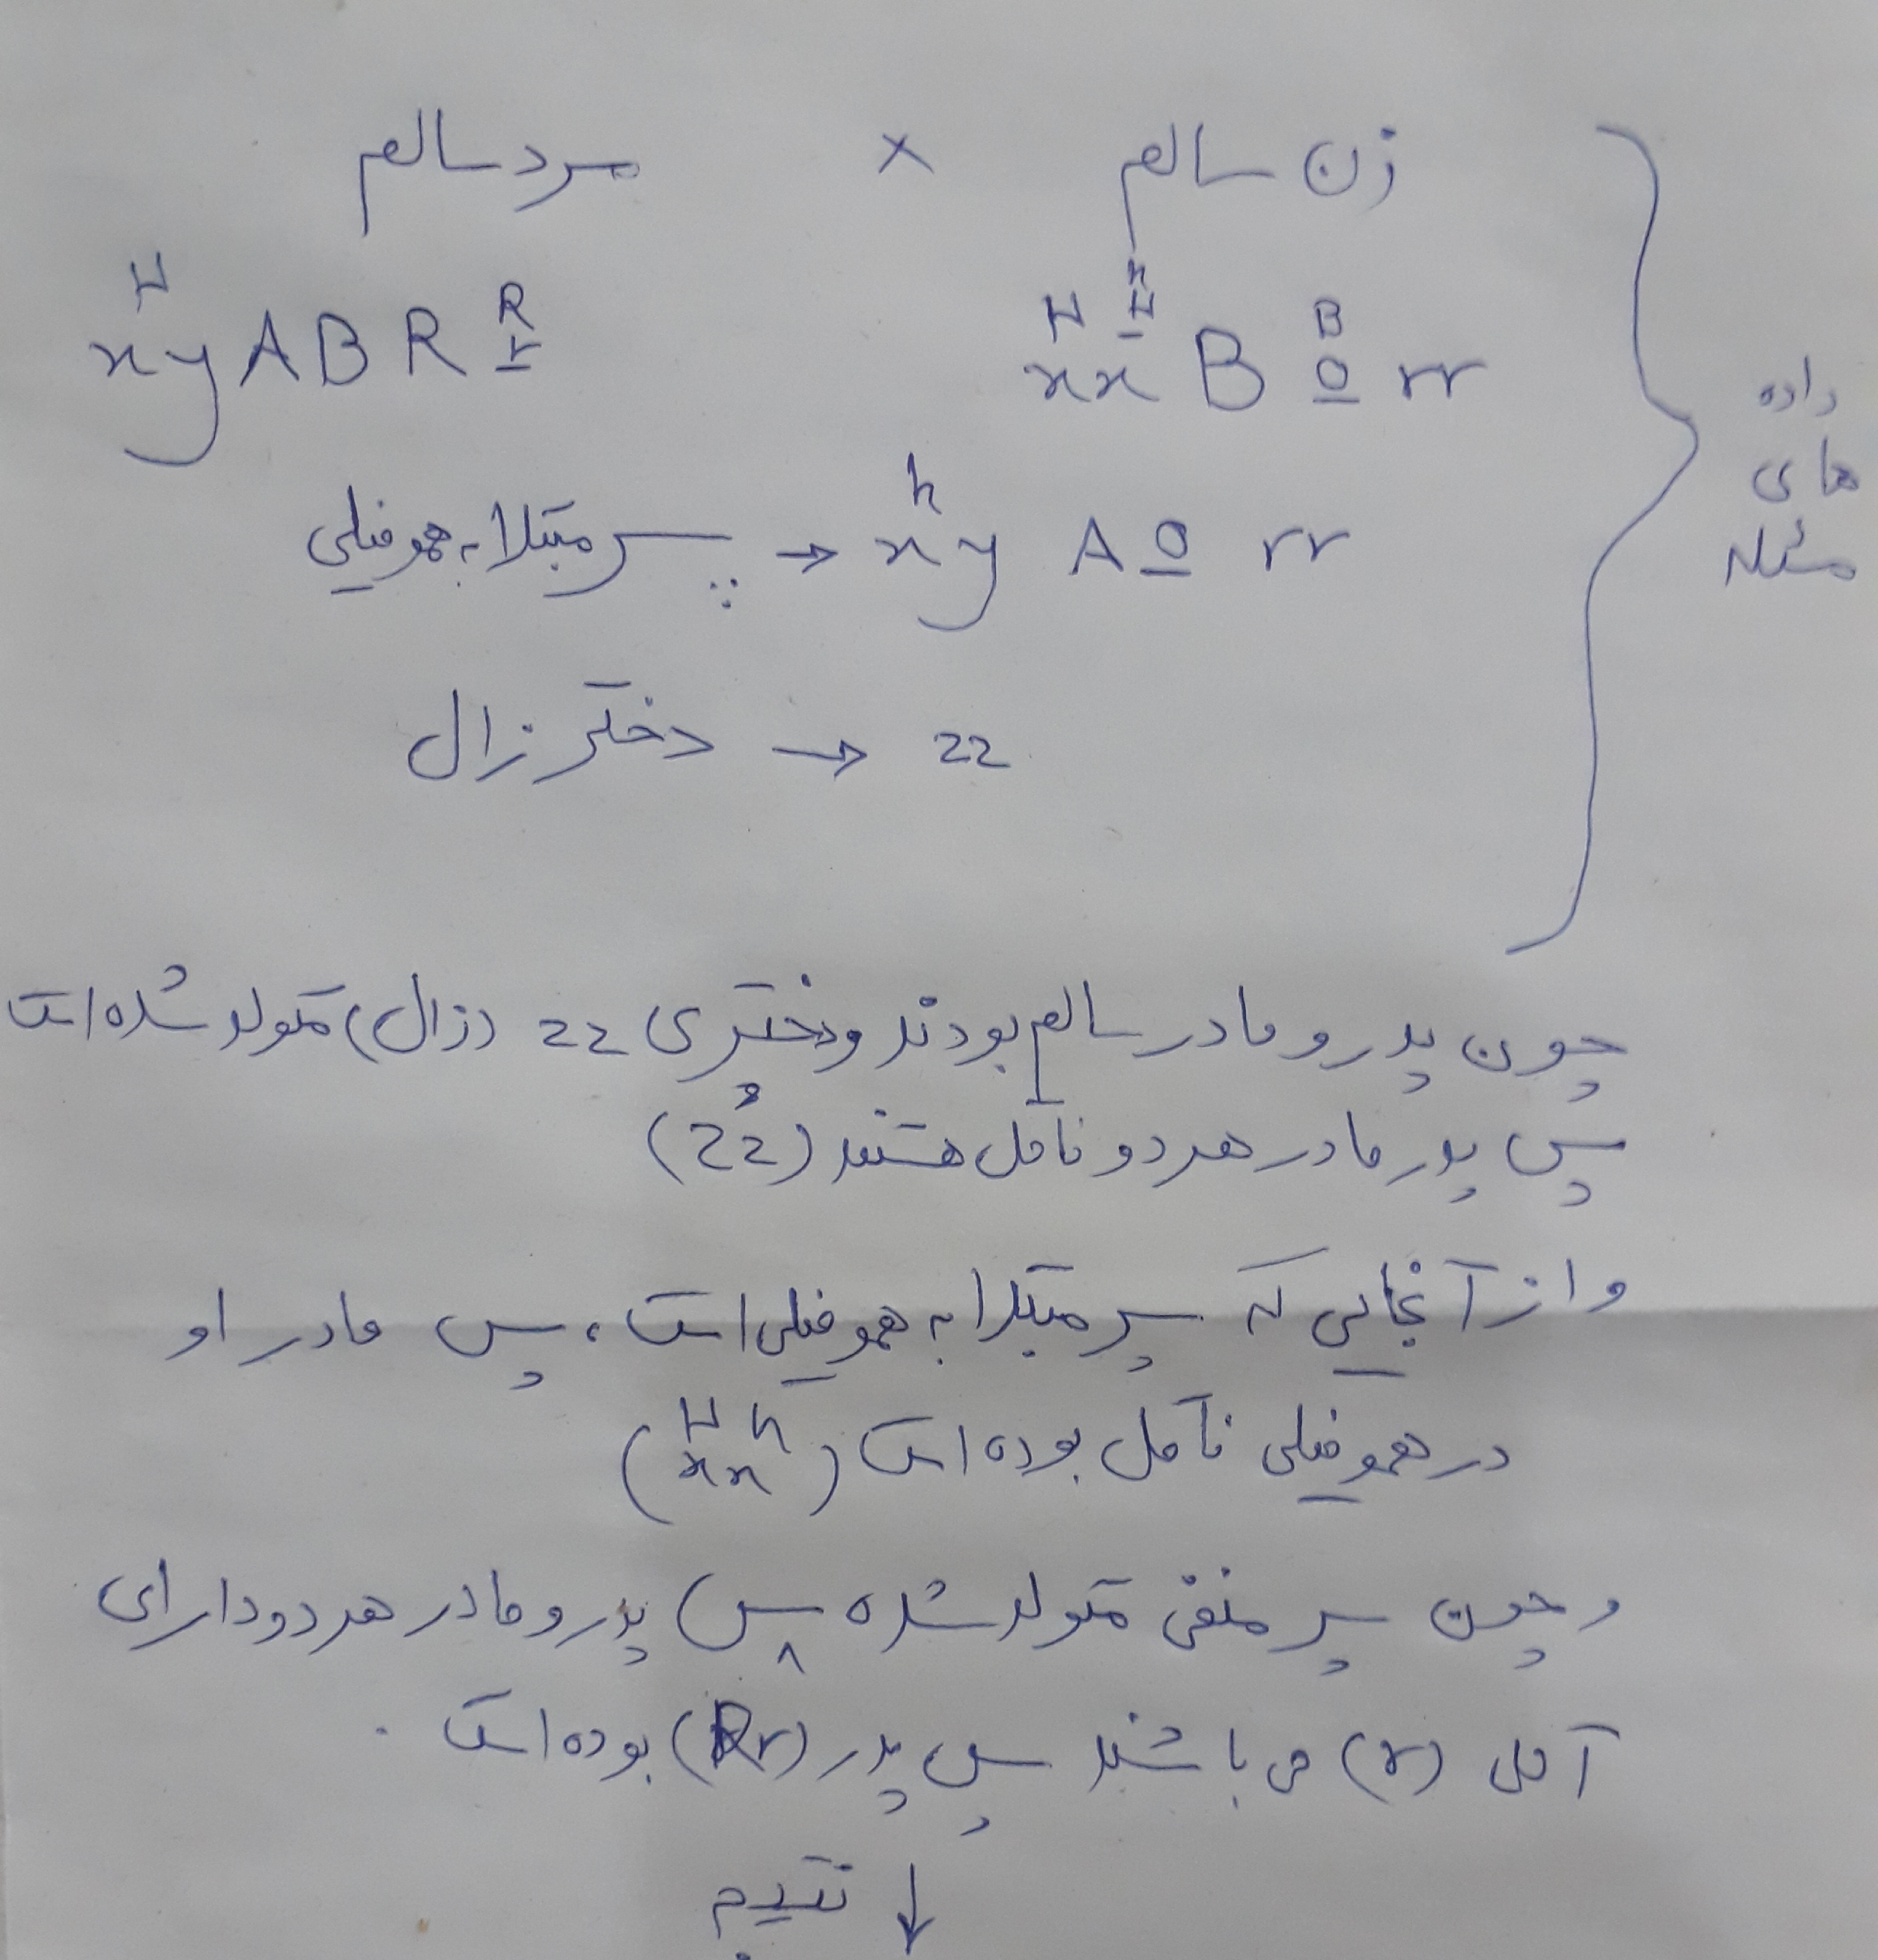 زن سالم × مرد سالم
H H h
xx B B O rr
H R
xy A B R r
داده
های
مسئله
h
پسر مبتلا به هموفیلی → xy A O rr
دختر زال → zz
چون پدر و مادر سالم بودند و دختری zz (زال) متولد شده است
پس پدر مادر هر دو ناقل هستند (Zz)
و از آنجایی که پسر مبتلا به هموفیلی است، پس مادر او
در هموفیلی ناقل بوده است (xᴴxʰ)
و چون پسر منفی متولد شده پس پدر و مادر هر دو دارای
آلل (r) می باشند پس پدر (Rr) بوده است.
↓ نتیجه